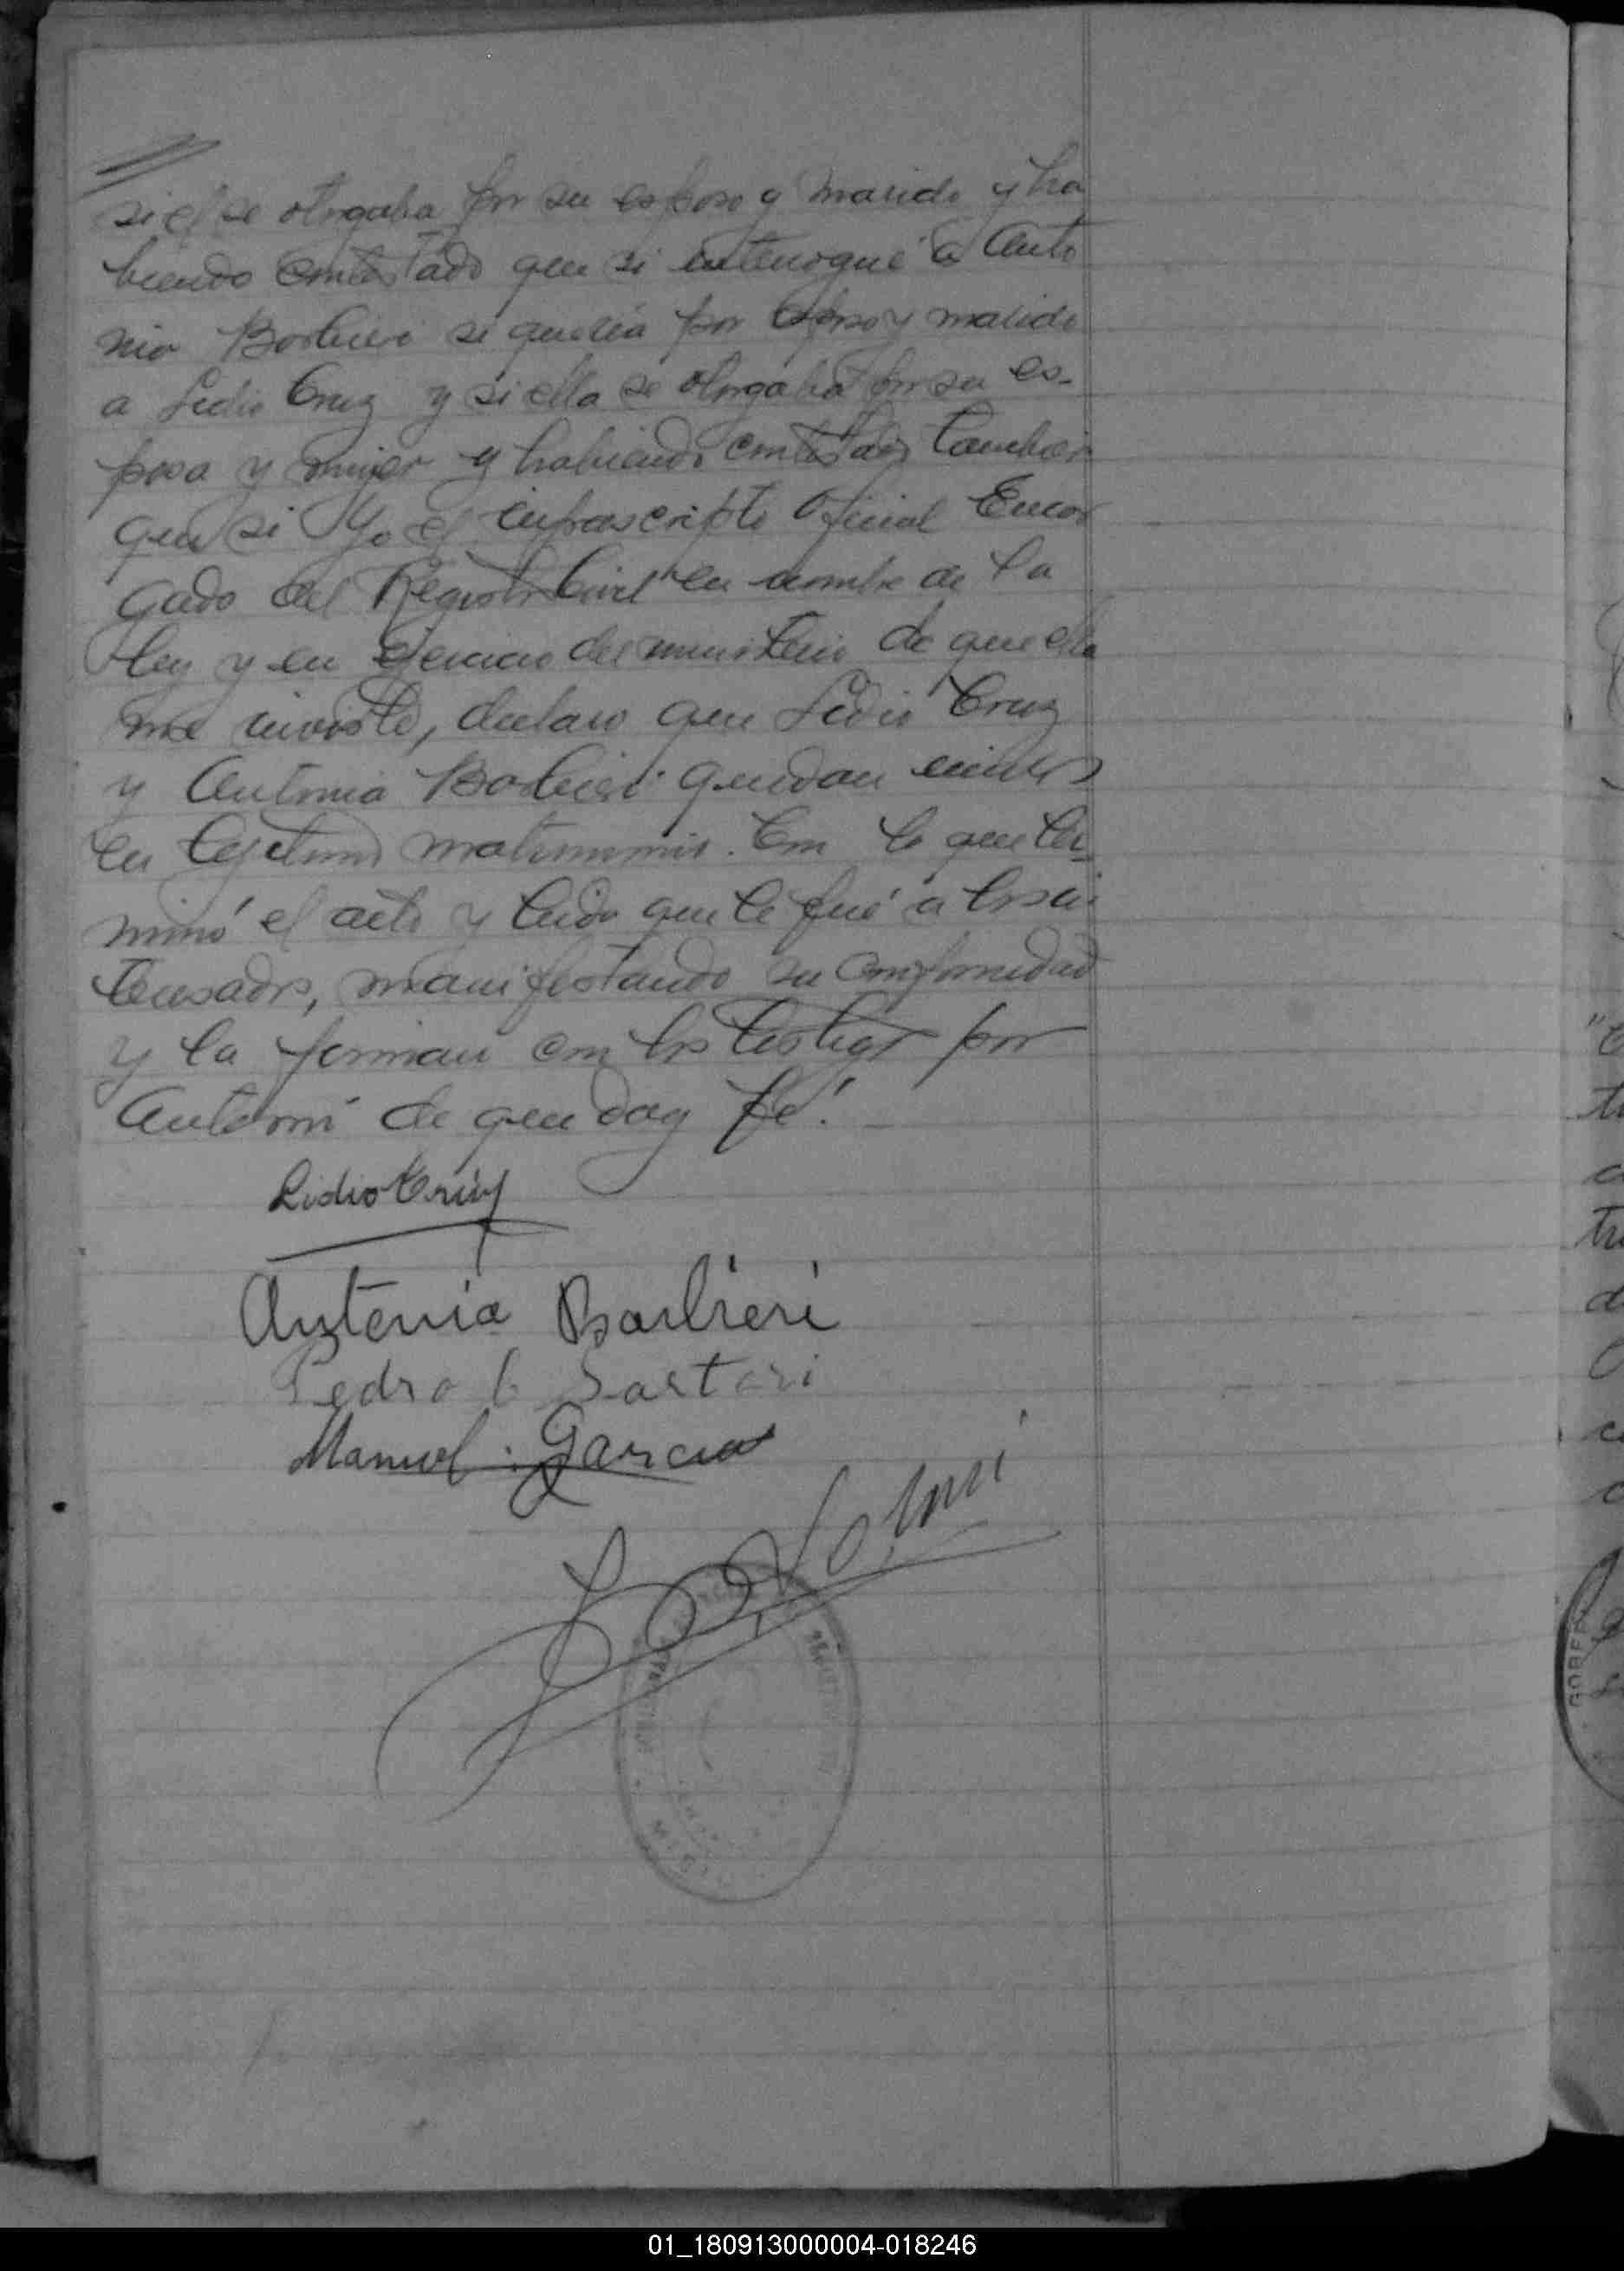 si el se otorgaba por su esposo y marido y ha
biendo contestado que si interrogué a Anto
nia Barbieri si queria por esposo y marido
a Lidio Cruz y si ella se otorgaba por su es-
posa y mujer y habiendo contestado tambien
que si Yo el infrascripto Oficial Encar
gado del Registro Civil en nombre de la
ley y en ejercicio del ministerio de que ella
me inviste, declaro que Lidio Cruz
y Antonia Barbieri quedan unidos
en legitimo matrimonio. Con lo que ter-
minó el acto y leido que le fué a los in
teresados, manifestando su conformidad
y la firman con los testigos por
ante mi de que doy fé.
Lidio Cruz
Antonia Barbieri
Pedro C Sartori
Manuel Garcia
01_180913000004-018246